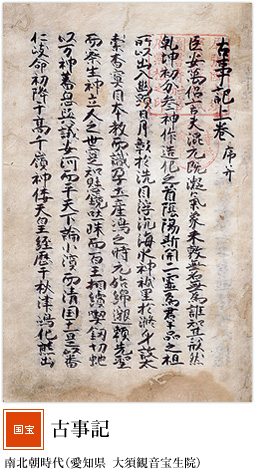 古事記上卷 序并
臣安萬侶言夫混元既凝氣象未效無名無爲誰知其形然
乾坤初分參神作造化之首陰陽斯開二靈爲群品之祖
所以出入幽顯日月彰於洗目浮沈海水神祇呈於滌身故太
素杳冥因本教而識孕土産嶋之時元始綿邈頼先聖
而察生神立人之世寔知懸鏡吐珠而百王相續喫釼切蛇
以万神蕃息歟議安河而平天下論小濱而清國土是以番
仁岐命初降于高千嶺神倭天皇經歷于秋津嶋化熊出
国宝
古事記
南北朝時代(愛知県 大須観音宝生院)